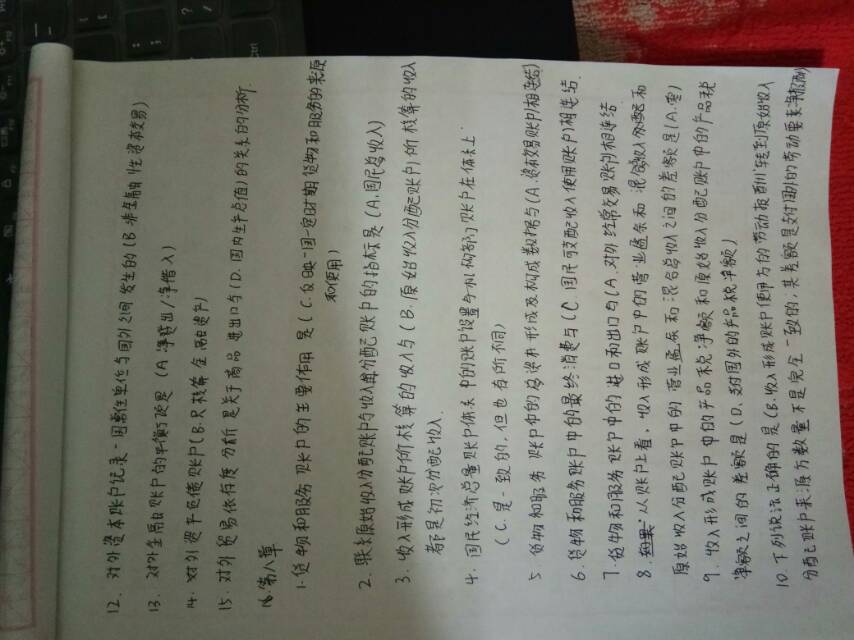 12. 对外资本账户记录一国常住单位与国外之间发生的(B.非金融性资本交易)
13. 对外金融账户的平衡项是(A净贷出/净借入)
14. 对外资产负债账户(B.只核算金融资产)
15. 对外贸易依存度分析是关于商品进出口与(D.国内生产总值)的关系的分析.
第八章
1.货物和服务账户的主要作用是(C.反映一国一定时期货物和服务的来源
和使用)
2.联系原始收入分配账户与收入再分配账户的指标是(A.国民总收入)
3.收入形成账户所核算的收入与(B.原始收入分配账户)所核算的收入
都是初次分配收入.
4.国民经济总量账户体系中的账户设置与机构部门账户在体系上
(C.是一致的,但也有所不同)
5 货物和服务账户中的总资本形成及构成数据与(A.资本交易账户)相连结
6.货物和服务账户中的最终消费与(C.国民可支配收入使用账户)相连结.
7.货物和服务账户中的进口和出口与(A.对外经常交易账户)相连结
8.从账户上看,收入形成账户中的营业盈余和混合收入分配和
原始收入分配账户中的营业盈余和混合总收入之间的差额是(A.零)
9.收入形成账户中的产品税净额和原始收入分配账户中的产品税
净额之间的差额是(D.支付国外的产品税净额)
10.下列说法正确的是(B.收入形成账户使用方的劳动报酬转到原始收入
分配账户来源方数量不是完全一致的,其差额是支付国外的劳动要素净报酬)